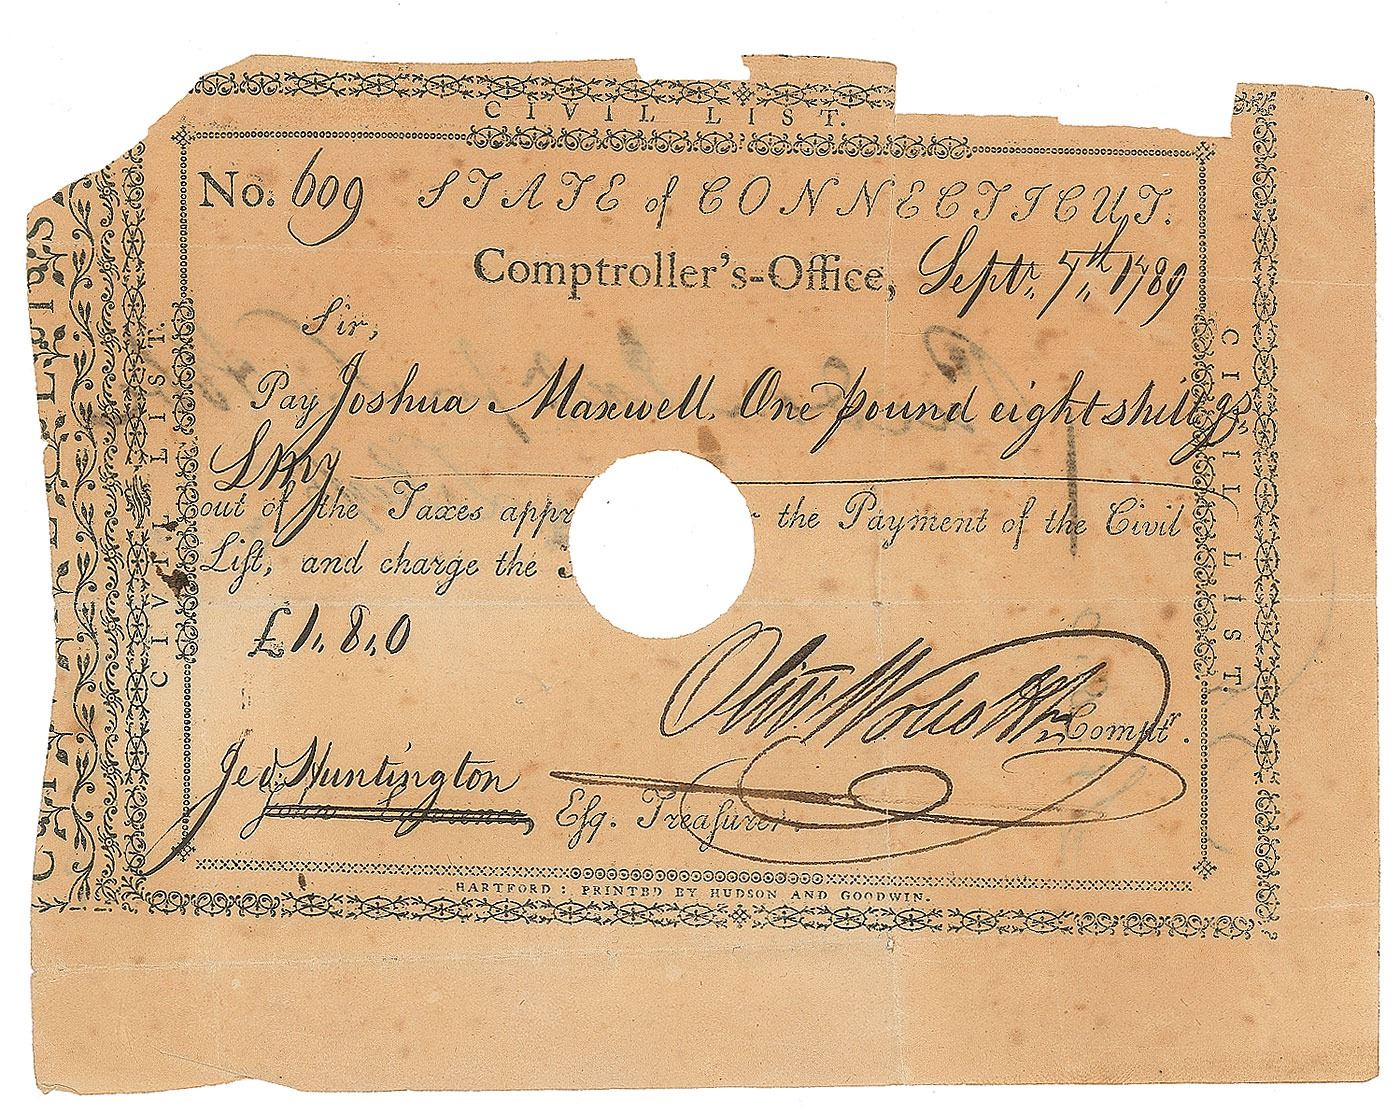 CIVIL LIST.
No. 609 STATE of CONNECTICUT.
Comptroller's-Office, Septr. 7th 1789
Sir,
Pay Joshua Maxwell One pound eight shillings
L My
out of the Taxes appr the Payment of the Civil
Liſt, and charge the
£1,,8,,0
Olivr Wolcott Jn Comptr.
Jed Huntington
John Lawrence, Eſq. Treaſurer.
HARTFORD: PRINTED BY HUDSON AND GOODWIN.
CIVIL LIST.
CIVIL LIST.